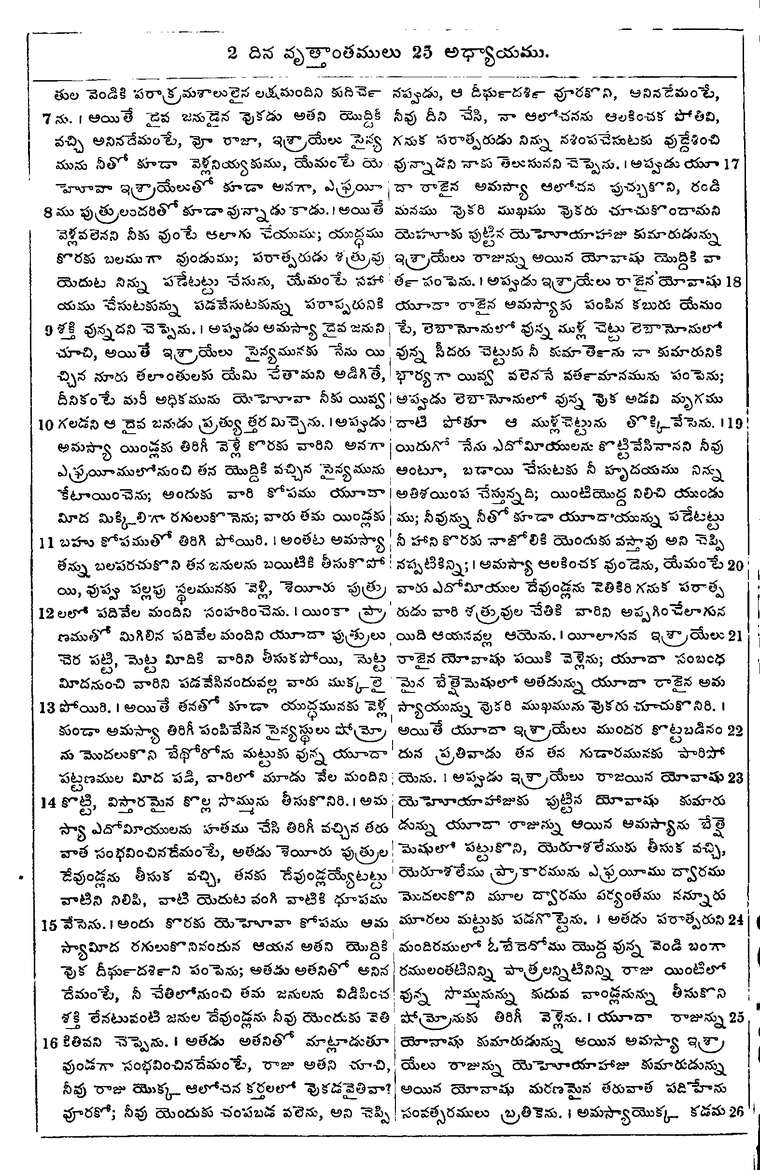 2 దిన వృత్తాంతములు 25 అధ్యాయము.
తుల వెండికి పరాక్రమశాలులైన లక్షమందిని కుదిర్చె
7 ను. । అయితే దైవ జనుడైన వొకడు అతని యొద్దికి
వచ్చి అనినదేమంటే, వోా రాజా, ఇశ్రాయేలు సైన్య
మును నీతో కూడా వెళ్లనియ్యకుము, యేమంటే యె
హోవా ఇశ్రాయేలుతో కూడా అనగా, ఎఫ్రయీ
8 ము పుత్రులందరితో కూడా వున్నాడు కాడు. । అయితే
వెళ్లవలెనని నీకు వుంటే ఆలాగు చేయుము; యుద్ధము
కొరకు బలముగా వుండుము; పరాత్పరుడు శత్రువు
యెదుట నిన్ను పడేటట్టు చేసును, యేమంటే సహా
యము చేసుటకున్ను పడవేసుటకున్ను పరాప్పరునికి
9 శక్తి వున్నదని చెప్పెను. । అప్పుడు అమస్యా దైవ జనుని
చూచి, అయితే ఇశ్రాయేలు సైన్యమునకు నేను యి
చ్చిన నూరు తలాంతులకు యేమి చేతామని అడిగితే,
దీనికంటే మరీ అధికమును యెహోవా నీకు యివ్వ
10 గలడని ఆ దైవ జనుడు ప్రత్యుత్తర మిచ్చెను. । అప్పుడు
అమస్యా యిండ్లకు తిరిగీ వెళ్లే కొరకు వారిని అనగా
ఎఫ్రయీములోనుంచి తన యొద్దికి వచ్చిన సైన్యమును
కేటాయించెను; అందుకు వారి కోపము యూదా
మీద మిక్కిలిగా రగులుకొనెను; వారు తమ యిండ్లకు
11 బహు కోపముతో తిరిగి పోయిరి. । అంతట అమస్యా
తన్ను బలపరచుకొని తన జనులను బయిటికి తీసుకపో
యి, వుప్పు పల్లపు స్థలమునకు వెళ్లి, శెయీరు పుత్రు
12 లలో పదివేల మందిని సంహరించెను. । యింకా ప్రా
ణముతో మిగిలిన పదివేల మందిని యూదా పుత్రులు
చెర పట్టి, మెట్ట మీదికి వారిని తీసుకపోయి, మెట్ట
మీదనుంచి వారిని పడవేసినందువల్ల వారు ముక్కలై
13 పోయిరి. । అయితే తనతో కూడా యుద్ధమునకు వెళ్ల
కుండా అమస్యా తిరిగీ పంపివేసిన సైన్యస్థులు షోమ్రో
ను మొదలుకొని బేథోరోను మట్టుకు వున్న యూదా
పట్టణముల మీద పడి, వారిలో మూడు వేల మందిని
14 కొట్టి, విస్తారమైన కొల్ల సొమ్మును తీసుకొనిరి. । అమ
స్యా ఎదోమీయులను హతము చేసి తిరిగీ వచ్చిన తరు
వాత సంభవించినదేమంటే, అతడు శెయీరు పుత్రుల
దేవుండ్లను తీసుక వచ్చి, తనకు దేవుండ్లయ్యేటట్టు
వాటిని నిలిపి, వాటి యెదుట వంగి వాటికి ధూపము
15 వేసెను. । అందు కొరకు యెహోవా కోపము అమ
స్యామీద రగులుకొనినందున ఆయన అతని యొద్దికి
వొక దీర్ఘదర్శిని పంపెను; అతడు అతనితో అనిన
దేమంటే, నీ చేతిలోనుంచి తమ జనులను విడిపించ
శక్తి లేనటువంటి జనుల దేవుండ్లను నీవు యెందుకు వెతి
16 కితివని చెప్పెను. । అతడు అతనితో మాట్లాడుతూ
వుండగా సంభవించినదేమంటే, రాజు అతని చూచి,
నీవు రాజు యొక్క ఆలోచన కర్తలలో వొకడవైతివా?
వూరకో; నీవు యెందుకు చంపబడ వలెను, అని చెప్పి
నప్పుడు, ఆ దీర్ఘదర్శి వూరకొని, అనినదేమంటే,
నీవు దీని చేసి, నా ఆలోచనను ఆలకించక పోతివి,
గనుక పరాత్పరుడు నిన్ను నశింపచేసుటకు వుద్దేశించి
వున్నాడని నాకు తెలుసునని చెప్పెను. । అప్పుడు యూ 17
దా రాజైన అమస్యా ఆలోచన పుచ్చుకొని, రండి
మనము వొకరి ముఖము వొకరు చూచుకొందామని
యెహూకు పుట్టిన యెహోయాహాజు కుమారుడున్ను
ఇశ్రాయేలు రాజున్ను అయిన యోవాషు యొద్దికి వా
ర్త పంపెను. । అప్పుడు ఇశ్రాయేలు రాజైన యోవాషు 18
యూదా రాజైన అమస్యాకు పంపిన కబురు యేమం
టే, లెబానోనులో వున్న ముళ్ల చెట్టు లెబానోనులో
వున్న సీదరు చెట్టుకు నీ కుమార్తెను నా కుమారునికి
భార్యగా యివ్వ వలెననే వర్తమానమును పంపెను;
అప్పుడు లెబానోనులో వున్న వొక అడవి మృగము
దాటి పోతూ ఆ ముళ్లచెట్టును తొక్కివేసెను. । 19
యిదుగో నేను ఎదోమీయులను కొట్టివేసినానని నీవు
అంటూ, బడాయి చేసుటకు నీ హృదయము నిన్ను
అతిశయింప చేస్తున్నది; యింటియొద్ద నిలిచి యుండు
ము; నీవున్ను నీతో కూడా యూదాయున్ను పడేటట్టు
నీ హాని కొరకు నాజోలికి యెందుకు వస్తావు అని చెప్పి
నప్పటికిన్ని; । అమస్యా ఆలకించక వుండెను, యేమంటే 20
వారు ఎదోమీయుల దేవుండ్లను వెతికిరి గనుక పరాత్ప
రుడు వారి శత్రువుల చేతికి వారిని అప్పగించేలాగున
యిది ఆయనవల్ల ఆయెను. । యీలాగున ఇశ్రాయేలు 21
రాజైన యోవాషు పయికి వెళ్లెను; యూదా సంబంధ
మైన బేత్షెమెషులో అతడున్ను యూదా రాజైన అమ
స్యాయున్ను వొకరి ముఖమును వొకరు చూచుకొనిరి. ।
అయితే యూదా ఇశ్రాయేలు ముందర కొట్టబడినం 22
దున ప్రతివాడు తన తన గుడారమునకు పారిపో
యెను. । అప్పుడు ఇశ్రాయేలు రాజయిన యోవాషు 23
యెహోయాహాజుకు పుట్టిన యోవాషు కుమారు
డున్ను యూదా రాజున్ను ఆయిన అమస్యాను బేత్షె
మెషులో పట్టుకొని, యెరూశలేముకు తీసుక వచ్చి,
యెరూశలేము ప్రాకారమును ఎఫ్రయీము ద్వారము
మొదలుకొని మూల ద్వారము పర్యంతము నన్నూరు
మూరలు మట్టుకు పడగొట్టెను. । అతడు పరాత్పరుని 24
మందిరములో ఓబేదెదోము యొద్ద వున్న వెండి బంగా
రములంతటినిన్ని పాత్రలన్నిటినిన్ని రాజు యింటిలో
వున్న సొమ్మునున్ను కుదువ వాండ్లనున్ను తీసుకొని
షోమ్రోనుకు తిరిగీ వెళ్లెను. । యూదా రాజున్ను 25
యోవాషు కుమారుడున్ను అయిన అమస్యా ఇశ్రా
యేలు రాజున్ను యెహోయాహాజు కుమారుడున్ను
అయిన యోవాషు మరణమైన తరువాత పదిహేను
సంవత్సరములు బ్రతికెను. । అమస్యాయొక్క కడమ 26